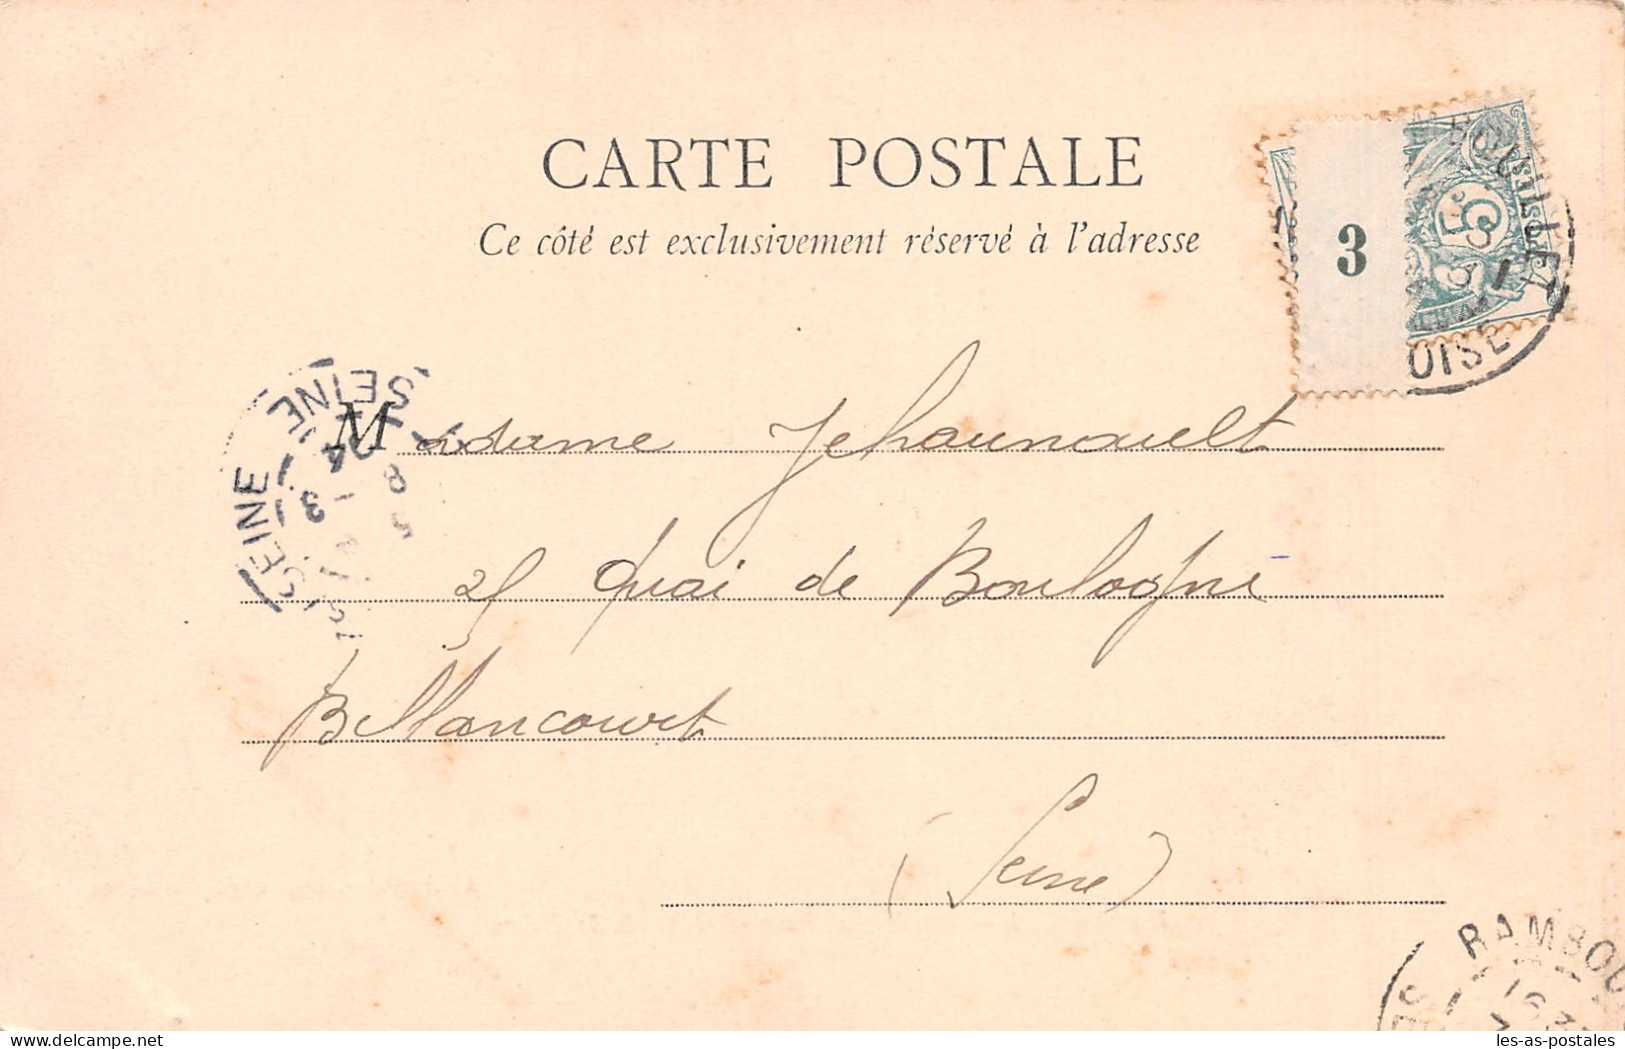 CARTE POSTALE
Ce côté est exclusivement réservé à l'adresse
3
5
OISE
SEINE
SEINE
Madame Jehannault
25 Quai de Boulogne
Billancourt
(Seine)
RAMBOU
les-as-postales